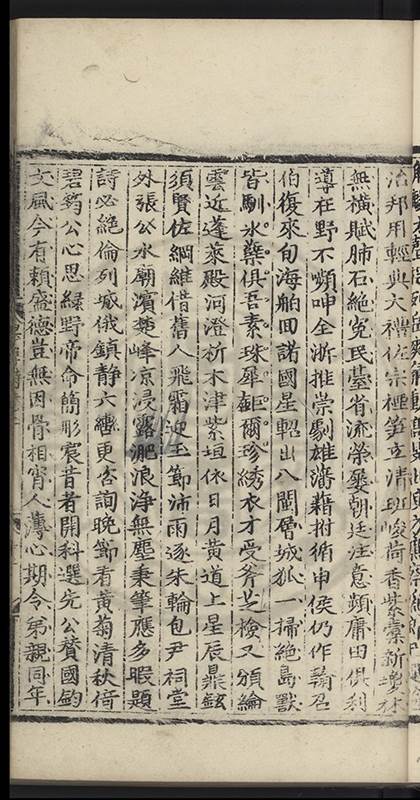 治邦用輕典大禮佐宗禋第立清班峻荷香紫橐新瓊林
無橫賦肺石絕冤民臺省流榮屢朝廷注意頻庸田俱利
導在野不嚬呻全浙推崇劇雄藩藉拊循申侯仍作翰召
伯復來旬海舶回諸國星軺出八閩層城狐一掃絕島獸
皆馴氷蘗俱吾素珠犀詎爾珍綉衣才受斧芝檢又頒綸
雲近蓬萊殿河澄析木津紫垣依日月黄道上星辰鼎鉉
須賢佐綱維借舊人飛霜迎玉節沛雨逐朱輪包尹祠堂
外張公水廟濱舞峰凉浸露淝浪浄無塵秉筆應多暇題
詩必絶倫列城俄鎮静六轡更咨詢晚節看黄菊清秋倚
碧筠公心思緑野帝命簡彤宸昔者開科選先公賛國鈞
文風今有頼盛德豈無因骨相宵人薄心期令弟親同年